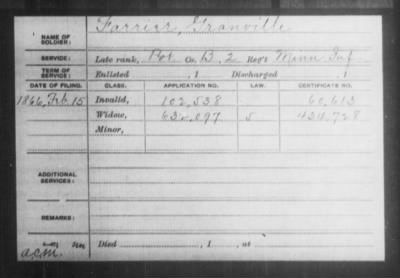 Farrier, Granville
NAME OF SOLDIER:
SERVICE: Late rank, Pvt Co. B, 2 Reg't Minn Inf
TERM OF SERVICE: Enlisted , 1 Discharged , 1
DATE OF FILING. CLASS. APPLICATION NO. LAW. CERTIFICATE NO.
1866, Feb 15 Invalid, 102,538 60,613
Widow, 632,097 434,728
Minor,
ADDITIONAL SERVICES:
REMARKS:
Died , 1 , at